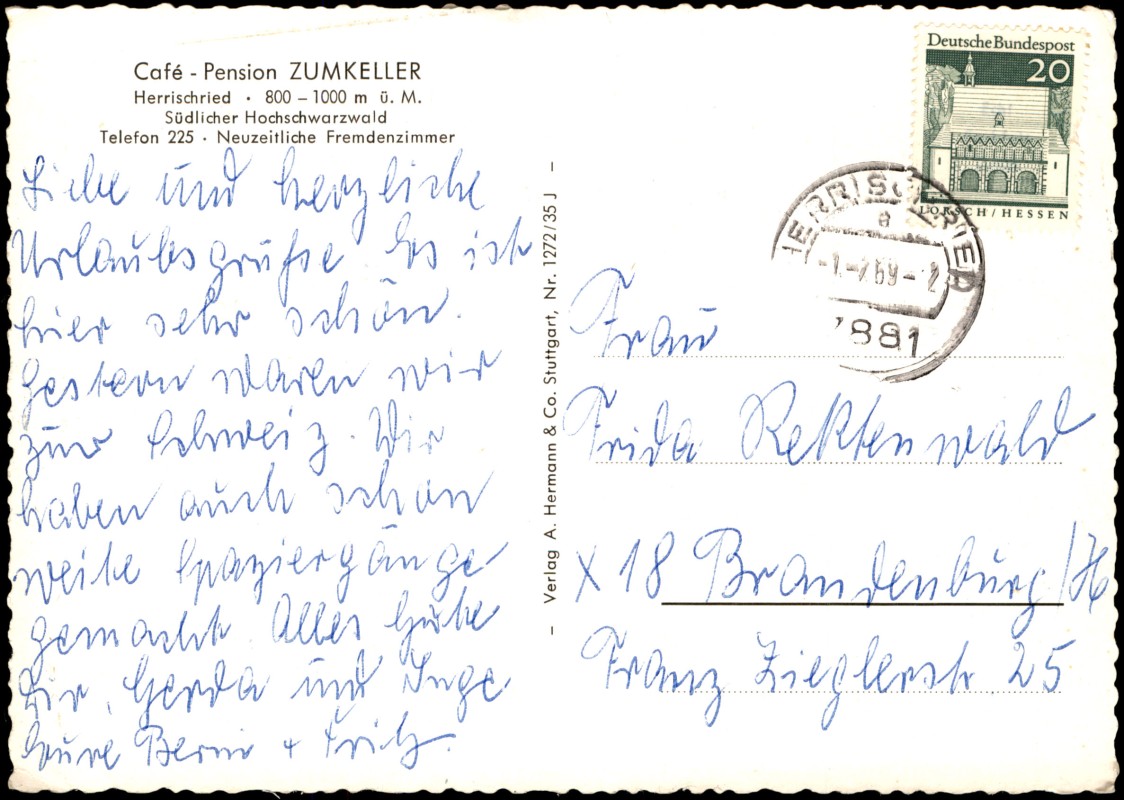 Café - Pension ZUMKELLER
Herrischried · 800 – 1000 m ü. M.
Südlicher Hochschwarzwald
Telefon 225 · Neuzeitliche Fremdenzimmer
Liebe und herzliche
Urlaubsgrüße. Es ist
hier sehr schön.
Gestern waren wir
zur Schweiz. Wir
haben auch schon
weite Spaziergänge
gemacht. Alles Gute
Dir, Gerda und Inge
Eure Berni + Fritz.
– Verlag A. Hermann & Co. Stuttgart, Nr. 1272/35 J –
Deutsche Bundespost
20
LORSCH/HESSEN
HERRISCHRIED
a
7881
Frau
Frida Rektenwald
X 18 Brandenburg/H
Franz Zieglerstr 25